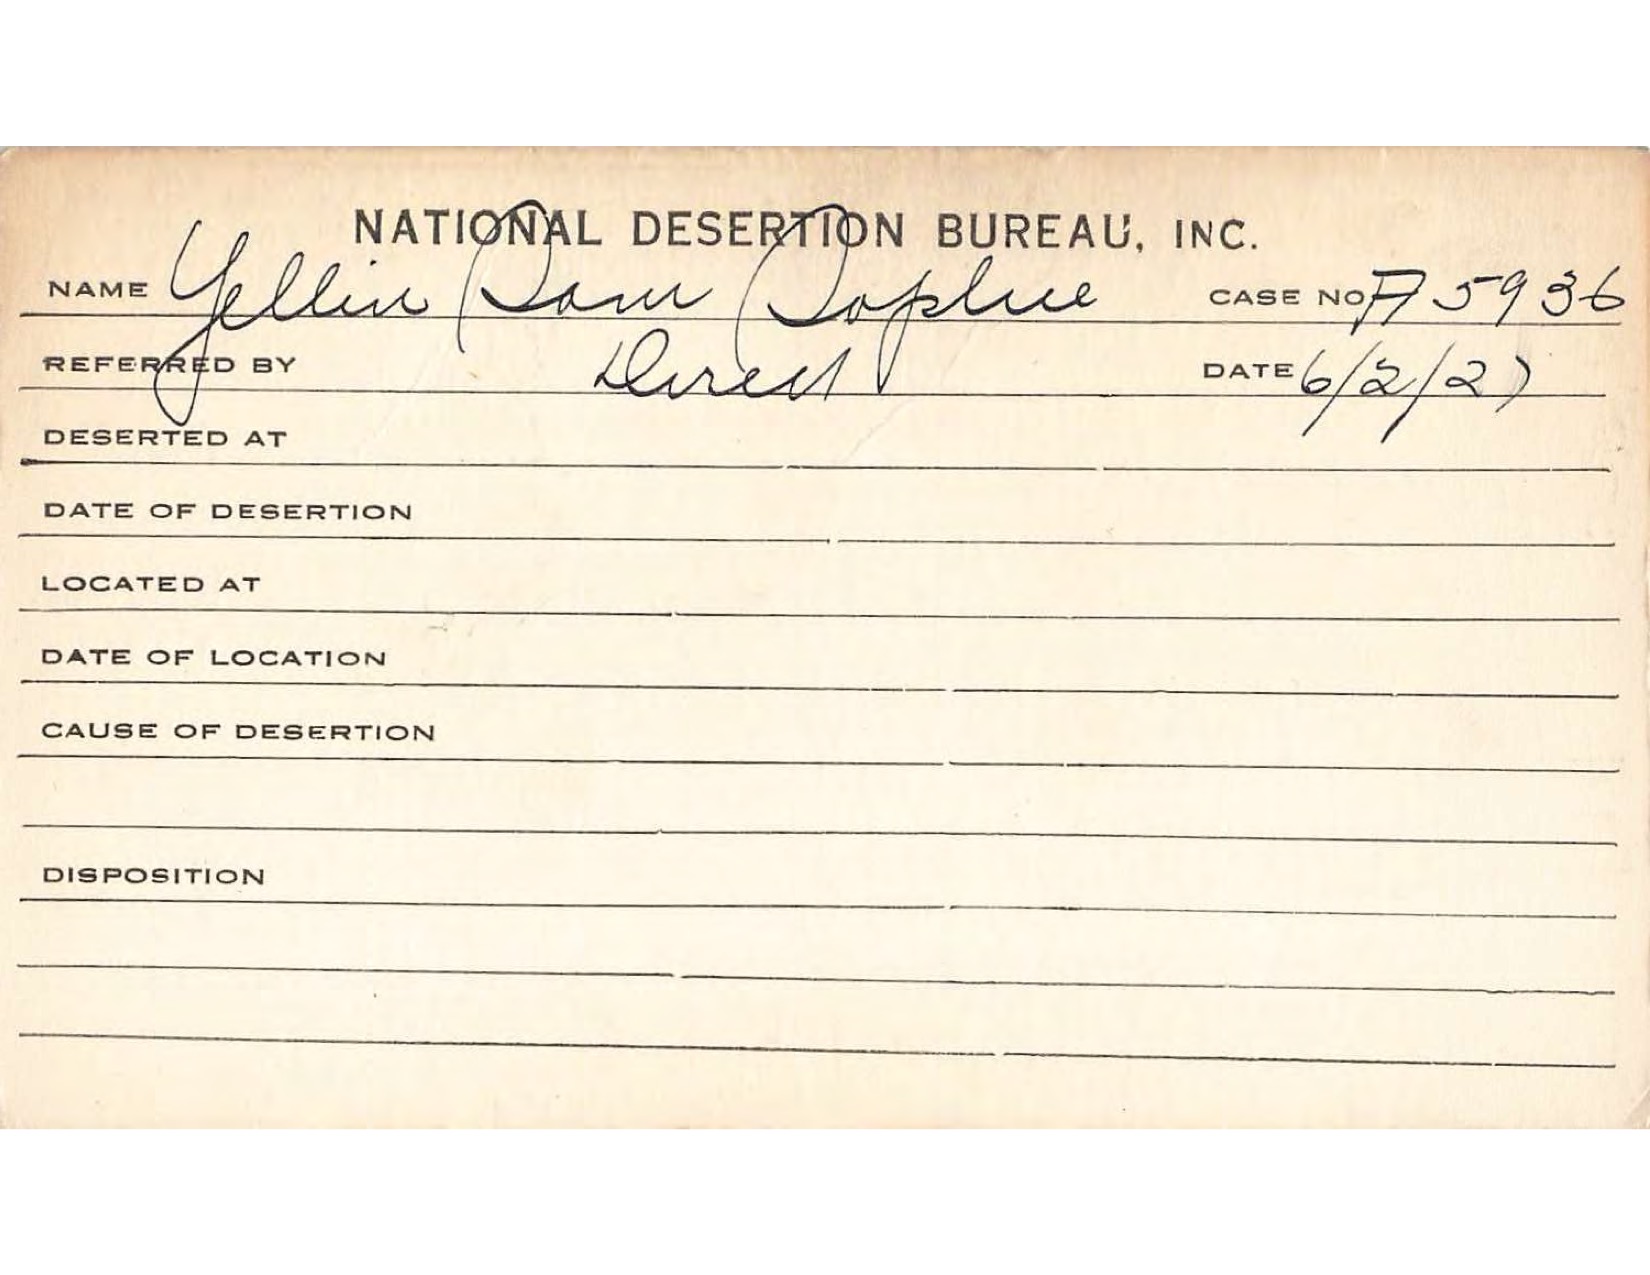 NATIONAL DESERTION BUREAU, INC.
NAME Yellin Sam Sophie CASE NO. A5936
REFERRED BY Direct DATE 6/2/27
DESERTED AT
DATE OF DESERTION
LOCATED AT
DATE OF LOCATION
CAUSE OF DESERTION
DISPOSITION